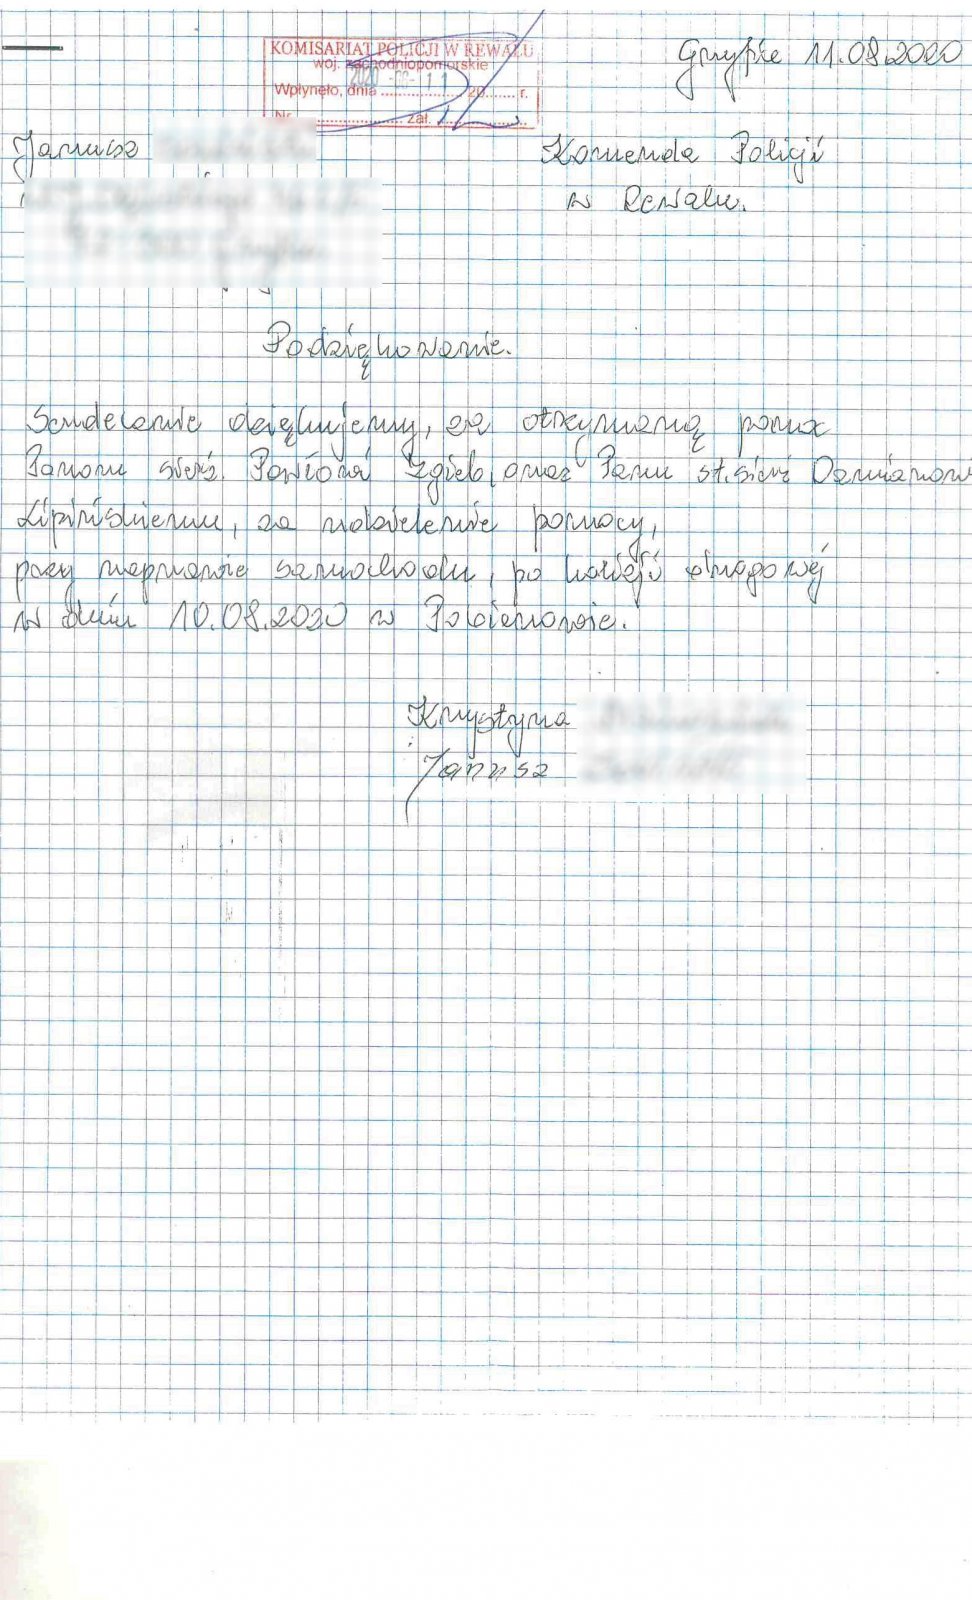 KOMISARIAT POLICJI W REWALU
woj. zachodniopomorskie
2020 -08- 11
Wpłynęło, dnia 20 r.
Nr zał.
Gryfice 11.08.2020
Janusz
Komenda Policji
w Rewalu.
Podziękowanie.
Serdecznie dziękujemy, za otrzymaną pomoc
Panom sierż. Pawłowi Zgieb, oraz Panu st. sierż Damianowi
Lipińskiemu, za udzielenie pomocy,
przy naprawie samochodu, po kolizji drogowej
w dniu 10.08.2020 w Pobierowie.
Krystyna
Janusz